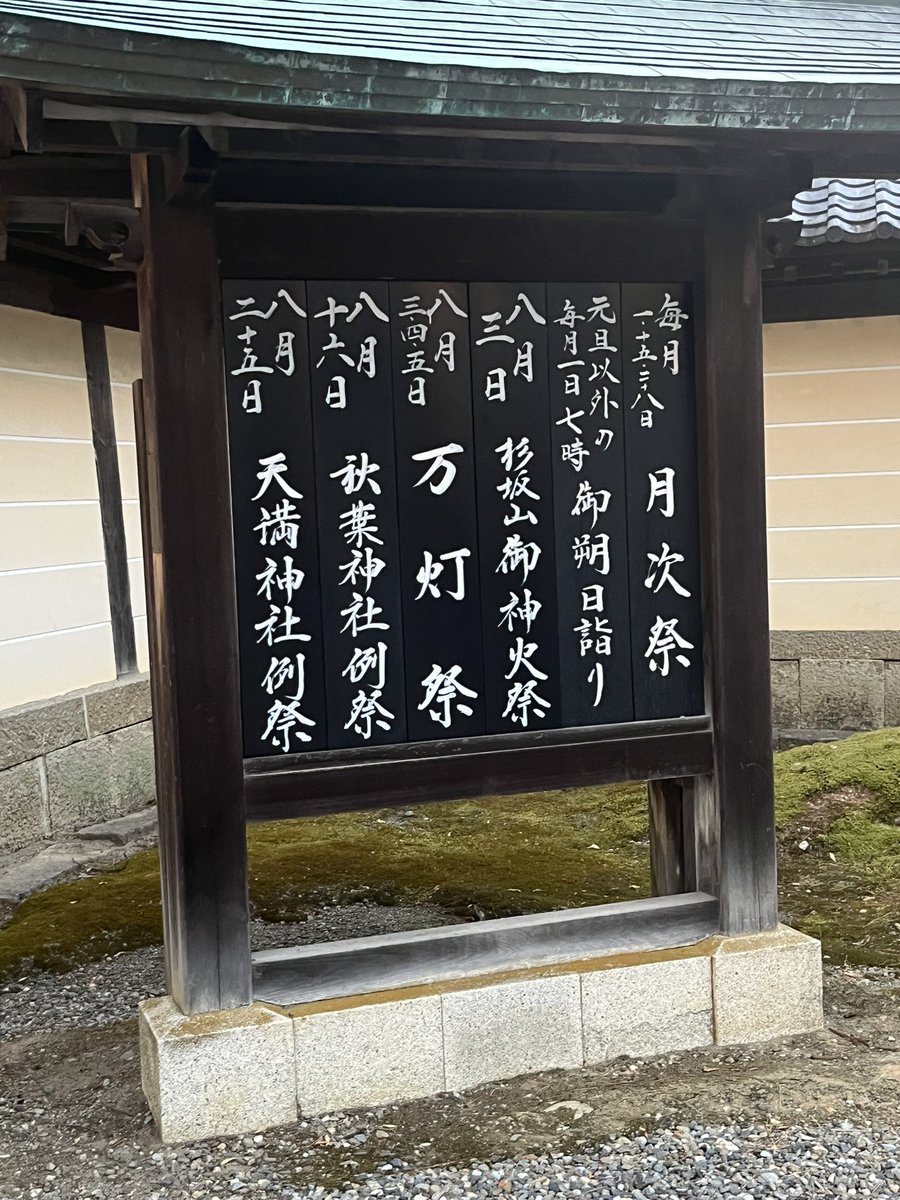 毎月
一・十五・二十八日
月次祭
元旦以外の
毎月一日七時
御朔日詣り
八月
三日
杉坂山御神火祭
八月
三・四・五日
万灯祭
八月
十六日
秋葉神社例祭
八月
二十五日
天満神社例祭